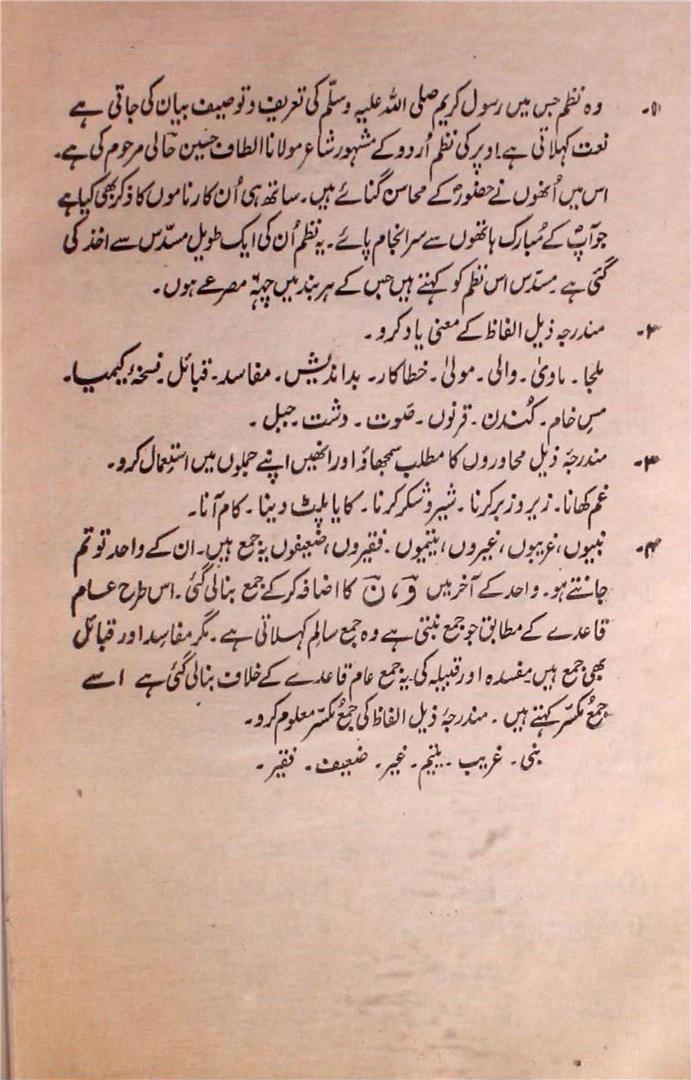 ۱۔ وہ نظم جس میں رسول کریم صلی اللہ علیہ وسلّم کی تعریف و توصیف بیان کی جاتی ہے
نعت کہلاتی ہے۔ اوپر کی نظم اُردو کے مشہور شاعر مولانا الطاف حسین حالی مرحوم کی ہے۔
اس میں اُنھوں نے حضورؐ کے محاسن گنائے ہیں۔ ساتھ ہی اُن کارناموں کا ذکر بھی کیا ہے
جو آپؐ کے مُبارک ہاتھوں سے سرانجام پائے۔ یہ نظم اُن کی ایک طویل مسدّس سے اخذ کی
گئی ہے۔ مسدّس اس نظم کو کہتے ہیں جس کے ہر بند میں چھ مصرعے ہوں۔
۲۔ مندرجہ ذیل الفاظ کے معنی یاد کرو۔
ملجا۔ ماویٰ۔ والی۔ مولیٰ۔ خطاکار۔ بداندیش۔ مفاسد۔ قبائل۔ نسخۂ کیمیا۔
مسِ خام۔ کُندن۔ قرنوں۔ صَوت۔ دشت۔ جبل۔
۳۔ مندرجۂ ذیل محاوروں کا مطلب سمجھاؤ اور انھیں اپنے جملوں میں استعمال کرو۔
غم کھانا۔ زیر و زبر کرنا۔ شیر و شکر کرنا۔ کایا پلٹ دینا۔ کام آنا۔
۴۔ نبیوں، غریبوں، غیروں، یتیموں۔ فقیروں، ضعیفوں یہ جمع ہیں۔ ان کے واحد تو تم
جانتے ہو۔ واحد کے آخر میں و، ن کا اضافہ کرکے جمع بنالی گئی۔ اس طرح عام
قاعدے کے مطابق جو جمع بنتی ہے وہ جمع سالم کہلاتی ہے۔ مگر مفاسد اور قبائل
بھی جمع ہیں مفسدہ اور قبیلہ کی یہ جمع عام قاعدے کے خلاف بنالی گئی ہے اسے
جمع مُکسّر کہتے ہیں۔ مندرجۂ ذیل الفاظ کی جمع مُکسّر معلوم کرو۔
نبی۔ غریب۔ یتیم۔ غیر۔ ضعیف۔ فقیر۔